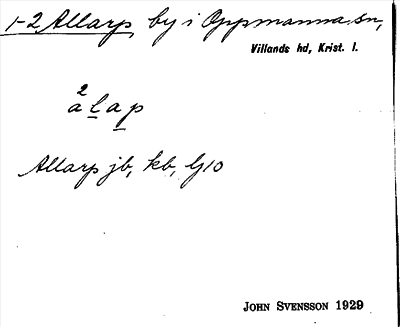 1-2 Allarp, by i Oppmanna sn,
Villands hd, Krist. l.
2
alap
Allarp jb, kb, G10
JOHN SVENSSON 1929